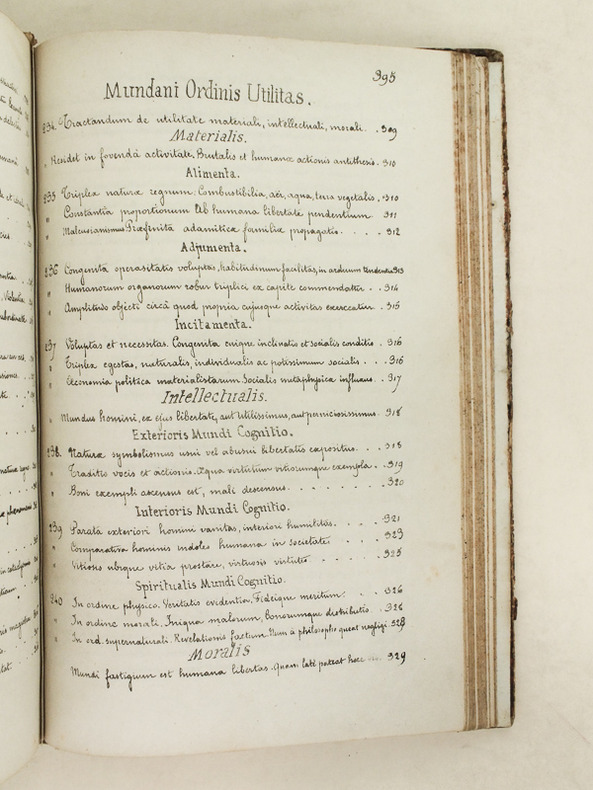 395
Mundani Ordinis Utilitas.
234. Tractandum de utilitate materiali, intellectuali, morali. . 309
Materialis.
" Residet in fovendâ activitate. Brutalis et humanæ actionis antithesis. 310
Alimenta.
235 Triplex naturæ regnum. Combustibilia, aër, aqua, terra vegetalis. . 310
" Constantia proportionum ab humana libertate pendentium 311
" Malthusianismus Præfinita adamiticæ familiæ propagatio. . . . 312
Adjumenta.
236 Congenita operositatis voluptas, habitudinum facilitas, in arduum tendentia 313
" Humanorum organorum robur triplici ex capite commendatur . . 314
" Amplitudo objecti circà quod propria cujusque activitas exerceatur. . 315
Incitamenta.
237 Voluptas et necessitas. Congenita cuique inclinatio et socialis conditio . 316
" Triplex egestas, naturalis, individualis ac potissimum socialis. . . . 316
" Œconomia politica materialistarum. Socialis metaphysica influxus. . 317
Intellectualis.
" Mundus homini, ex ejus libertate, aut utilissimus, aut perniciosissimus. 318
Exterioris Mundi Cognitio.
238. Naturæ symbolismus usui vel abusui libertatis expositus. . . . 318
" Traditio vocis et actionis. Æqua virtutum vitiorumque exempla. . 319
" Boni exempli ascensus est, mali descensus. . . . . . . . 320
Interioris Mundi Cognitio.
239 Parata exteriori homini vanitas, interiori humilitas. . . . . 321
" Comparativa hominis indoles humana in societate . . . 323
" Vitiosis ubique vitia prostare, virtuosis virtutes . . . . 325
Spiritualis Mundi Cognitio.
240 In ordine physico. Veritatis evidentia, Fideique meritum. . . . 326
" In ordine morali. Iniqua malorum, bonorumque distributio . 326
" In ord. supernaturali. Revelationis factum. Num a philosopho queat negligi 328
Moralis
Mundi fastigium est humana libertas. Quam latè pateat hæc 329